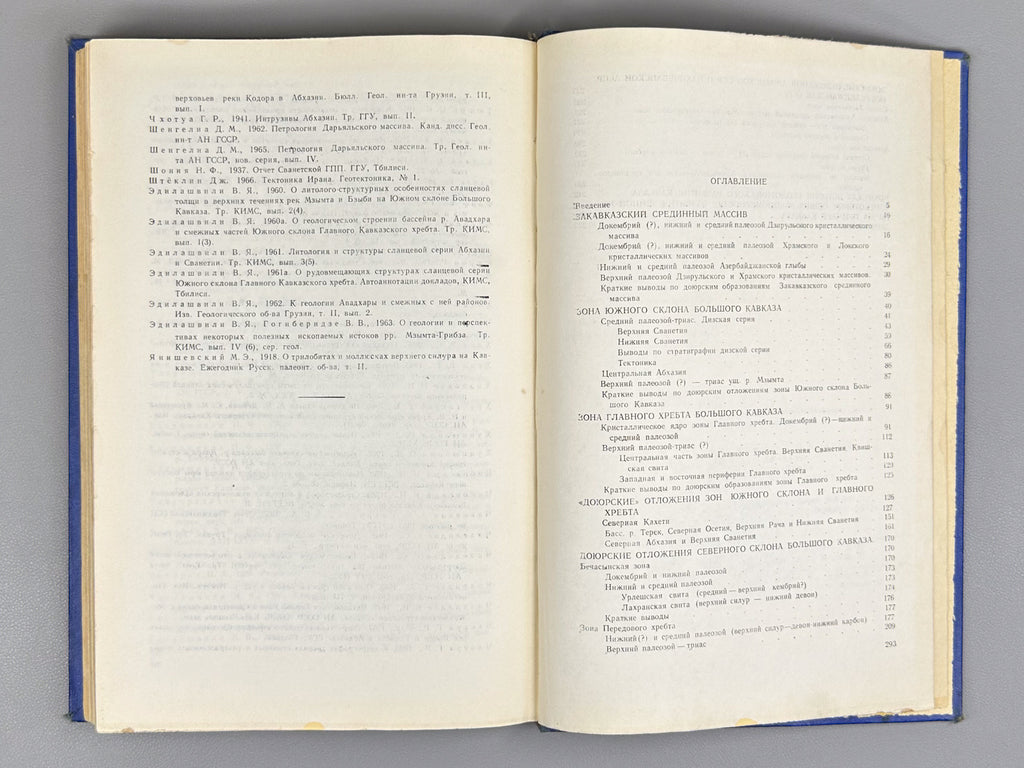 верховьев реки Кодора в Абхазии. Бюлл. Геол. ин-та Грузии, т. III,
вып. I.
Чхотуа Г. Р., 1941. Интрузивы Абхазии. Тр. ГГУ, вып. II.
Шенгелиа Д. М., 1962. Петрология Дарьяльского массива. Канд. дисс. Геол.
ин-т АН ГССР.
Шенгелиа Д. М., 1965. Петрология Дарьяльского массива. Тр. Геол. ин-
та АН ГССР, нов. серия, вып. IV.
Шония Н. Ф., 1937. Отчет Сванетской ГПП. ГГУ, Тбилиси.
Штёклин Дж. 1966. Тектоника Ирана. Геотектоника, № 1.
Эдилашвили В. Я., 1960. О литолого-структурных особенностях сланцевой
толщи в верхних течениях рек Мзымта и Бзыби на Южном склоне Большого
Кавказа. Тр. КИМС, вып. 2(4).
Эдилашвили В. Я. 1960а. О геологическом строении бассейна р. Авадхара
и смежных частей Южного склона Главного Кавказского хребта. Тр. КИМС,
вып. 1(3).
Эдилашвили В. Я., 1961. Литология и структуры сланцевой серии Абхазии
и Сванетии. Тр. КИМС, вып. 3(5).
Эдилашвили В. Я., 1961а. О рудовмещающих структурах сланцевой серии
Южного склона Главного Кавказского хребта. Автоаннотации докладов, КИМС,
Тбилиси.
Эдилашвили В. Я., 1962. К геологии Авадхары и смежных с ней районов.
Изв. Геологического об-ва Грузии, т. II, вып. 2.
Эдилашвили В. Я., Готнберидзе В. В., 1963. О геологии и перспек-
тивах некоторых полезных ископаемых истоков рр. Мзымта-Грибза. Тр.
КИМС, вып. IV (6), сер. геол.
Янишевский М. Э., 1918. О трилобитах и моллюсках верхнего силура на Кав-
казе. Ежегодник Русск. палеонт. об-ва, т. II.
ОГЛАВЛЕНИЕ
Введение 5
ЗАКАВКАЗСКИЙ СРЕДИННЫЙ МАССИВ 16
Докембрий (?), нижний и средний палеозой Дзирульского кристаллического
массива 16
Докембрий (?), нижний и средний палеозой Храмского и Локского
кристаллических массивов 24
Нижний и средний палеозой Азербайджанской глыбы 29
Верхний палеозой Дзирульского и Храмского кристаллических массивов. 30
Краткие выводы по доюрским образованиям Закавказского срединного
массива 39
ЗОНА ЮЖНОГО СКЛОНА БОЛЬШОГО КАВКАЗА 40
Средний палеозой-триас. Дизская серия 41
Верхняя Сванетия 43
Нижняя Сванетия 59
Выводы по стратиграфии дизской серии 66
Тектоника 80
Центральная Абхазия 86
Верхний палеозой (?) — триас ущ. р. Мзымта 87
Краткие выводы по доюрским отложениям зоны Южного склона Боль-
шого Кавказа 86
ЗОНА ГЛАВНОГО ХРЕБТА БОЛЬШОГО КАВКАЗА 91
Кристаллическое ядро зоны Главного хребта. Докембрий (?)—нижний и
средний палеозой 91
Верхний палеозой-триас (?) 112
Центральная часть зоны Главного хребта. Верхняя Сванетия. Квиш-
ская свита 113
Западная и восточная периферии Главного хребта 123
Краткие выводы по доюрским образованиям зоны Главного хребта 125
«ДОЮРСКИЕ» ОТЛОЖЕНИЯ ЗОН ЮЖНОГО СКЛОНА И ГЛАВНОГО
ХРЕБТА 126
Северная Кахети 127
Басс. р. Терек, Северная Осетия, Верхняя Рача и Нижняя Сванетия 151
Северная Абхазия и Верхняя Сванетия 161
ДОЮРСКИЕ ОТЛОЖЕНИЯ СЕВЕРНОГО СКЛОНА БОЛЬШОГО КАВКАЗА 170
Бечасынская зона 170
Докембрий и нижний палеозой 170
Нижний и средний палеозой 173
Урлешская свита (средний — верхний кембрий?) 173
Лахранская свита (верхний силур — нижний девон) 174
Краткие выводы 176
Зона Передового хребта 177
Нижний(?) и средний палеозой (верхний силур—девон-нижний карбон) 177
Верхний палеозой — триас 209
293